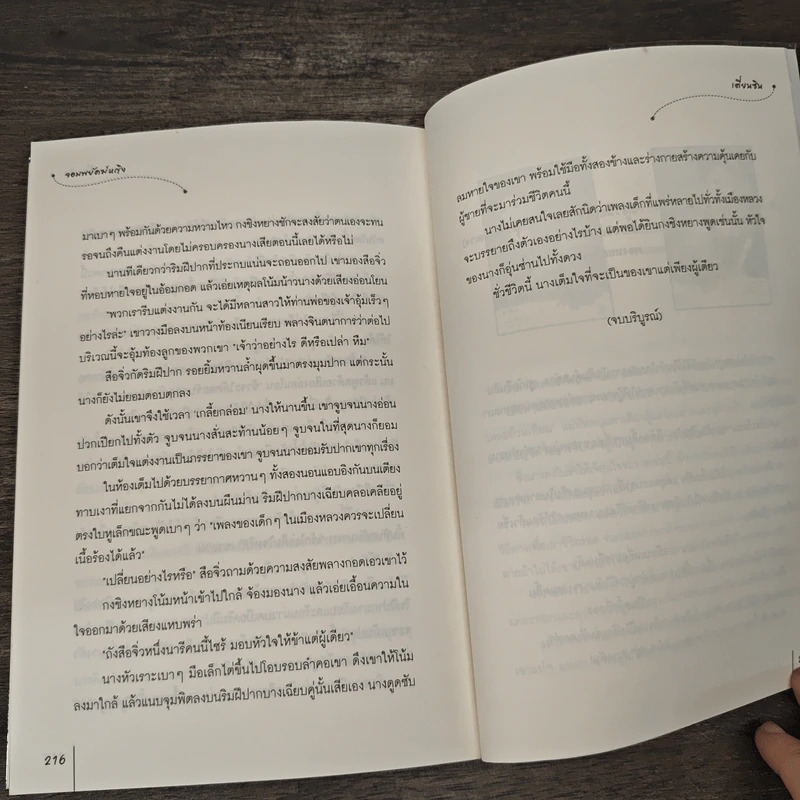 จอมพยัคฆ์หญิง
มาเบาๆ พร้อมกันด้วยความหวามไหว กงซิงหยางชักจะสงสัยว่าตนเองจะทน
รอจนถึงคืนแต่งงานโดยไม่ครอบครองนางเสียตอนนี้เลยได้หรือไม่
นานทีเดียวกว่าริมฝีปากที่ประกบแน่นจะถอนออกไป เขามองสือจิ่ว
ที่หอบหายใจอยู่ในอ้อมกอด แล้วเอ่ยเหตุผลโน้มน้าวนางด้วยเสียงอ่อนโยน
"พวกเรารีบแต่งงานกัน จะได้มีหลานสาวให้ท่านพ่อของเจ้าอุ้มเร็วๆ
อย่างไรล่ะ" เขาวางมือลงบนหน้าท้องเนียนเรียบ พลางจินตนาการว่าต่อไป
บริเวณนี้จะอุ้มท้องลูกของพวกเขา "เจ้าว่าอย่างไร ดีหรือเปล่า หืม"
สือจิ่วกัดริมฝีปาก รอยยิ้มหวานล้ำผุดขึ้นมาตรงมุมปาก แต่กระนั้น
นางก็ยังไม่ยอมตอบตกลง
ดังนั้นเขาจึงใช้เวลา 'เกลี้ยกล่อม' นางให้นานขึ้น เขาจูบจนนางอ่อน
ปวกเปียกไปทั้งตัว จูบจนนางสั่นสะท้านน้อยๆ จูบจนในที่สุดนางก็ยอม
บอกว่าเต็มใจแต่งงานเป็นภรรยาของเขา จูบจนนางยอมรับปากเขาทุกเรื่อง
ในห้องเต็มไปด้วยบรรยากาศหวานๆ ทั้งสองนอนแอบอิงกันบนเตียง
ทาบเงาที่แยกจากกันไม่ได้ลงบนผืนม่าน ริมฝีปากบางเฉียบคลอเคลียอยู่
ตรงใบหูเล็กขณะพูดเบาๆ ว่า "เพลงของเด็กๆ ในเมืองหลวงควรจะเปลี่ยน
เนื้อร้องได้แล้ว"
"เปลี่ยนอย่างไรหรือ" สือจิ่วถามด้วยความสงสัยพลางกอดเอวเขาไว้
กงซิงหยางโน้มหน้าเข้าไปใกล้ จ้องมองนาง แล้วเอ่ยเอื้อนความใน
ใจออกมาด้วยเสียงแหบพร่า
"ถังสือจิ่วหนึ่งนารีคนนี้ไซร้ มอบหัวใจให้ข้าแต่ผู้เดียว"
นางหัวเราะเบาๆ มือเล็กไต่ขึ้นไปโอบรอบลำคอเขา ดึงเขาให้โน้ม
ลงมาใกล้ แล้วแนบจุมพิตลงบนริมฝีปากบางเฉียบคู่นั้นเสียเอง นางดูดซับ
216
เตี่ยนซิน
ลมหายใจของเขา พร้อมใช้มือทั้งสองข้างและร่างกายสร้างความคุ้นเคยกับ
ผู้ชายที่จะมาร่วมชีวิตคนนี้
นางไม่เคยสนใจเลยสักนิดว่าเพลงเด็กที่แพร่หลายไปทั่วทั้งเมืองหลวง
จะบรรยายถึงตัวเองอย่างไรบ้าง แต่พอได้ยินกงซิงหยางพูดเช่นนั้น หัวใจ
ของนางก็อุ่นซ่านไปทั้งดวง
ชั่วชีวิตนี้ นางเต็มใจที่จะเป็นของเขาแต่เพียงผู้เดียว
(จบบริบูรณ์)